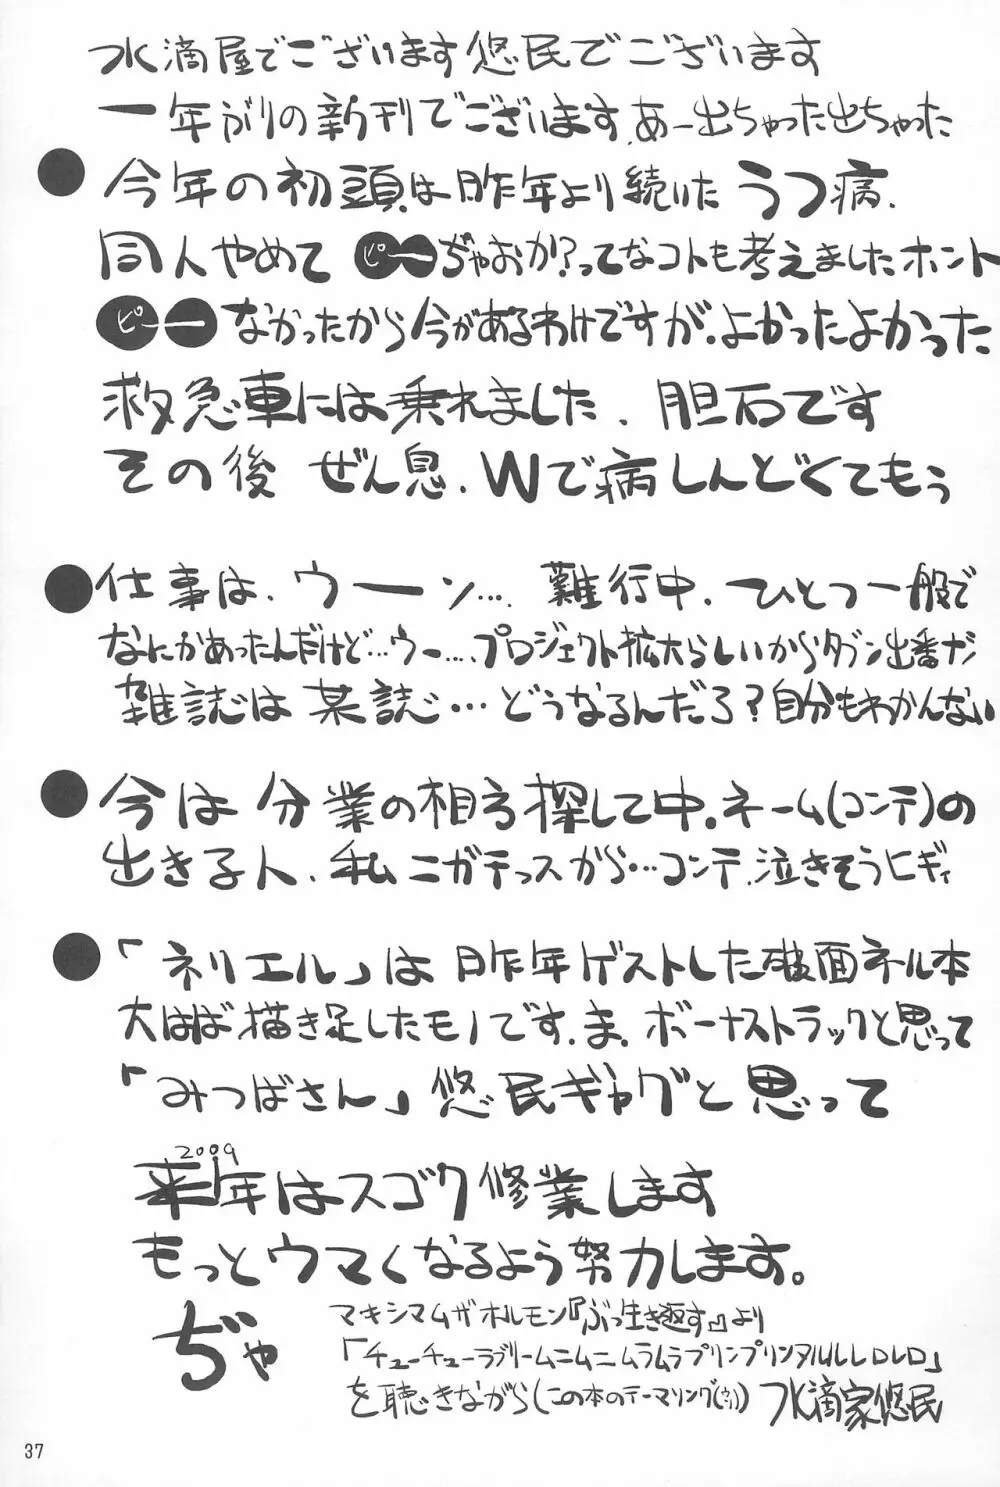 水滴屋でございます悠民でございます
一年ぶりの新刊でございます.あー出ちゃった出ちゃった
●今年の初頭は昨年より続いたうつ病.
同人やめてピーーぢゃおか?ってなコトも考えましたホント
ピーーなかったから今があるわけですが.よかったよかった
救急車には乗れました.胆石です
その後 ぜん息.Wで病しんどくてもう
●仕事は.ウーン….難行中.ひとつ一般で
なにかあったんだけど…ウー….プロジェクト拡大らしいからタブン出番が
雑誌は某誌…どうなるんだろ?自分もわかんない
●今は分業の相方探して中.ネーム(コンテ)の
出きる人.私ニガテっスから…コンテ.泣きそうヒギィ
●「ネリエル」は昨年ゲストした破面ネル本
大はば描き足したモノです.ま.ボーナストラックと思って
「みつばさん」悠民ギャグと思って
2009
来年はスゴク修業します
もっとウマくなるよう努力します。
ぢゃ
マキシマムザホルモン『ぶっ生き返す』より
「チューチューラブリームニムニムラムラプリンプリンヌルルレロレロ」
を聴きながら(この本のテーマソング(ウソ)) 水滴家悠民
37